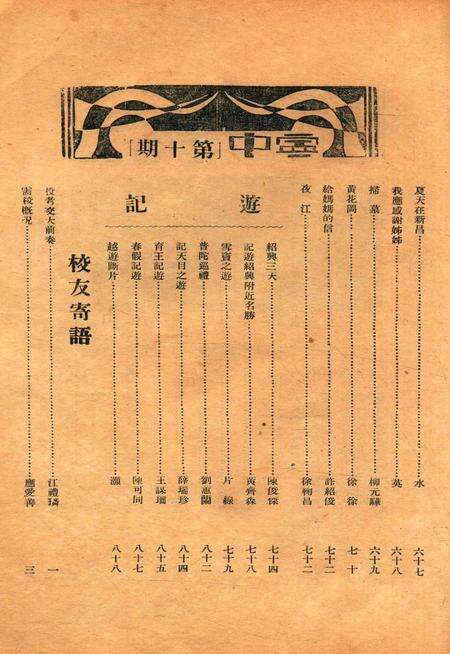 期十第
中
夏天在新昌……水 六十七
我應感謝姊姊……英 六十八
掃墓……柳元驊 六十九
黃花岡……徐徐 七十
給媽媽的信……許紹俊 七十二
夜江……徐翱昌 七十二
遊記
紹興三天……陳俊保 七十四
記遊紹興附近名勝……黃齊森 七十八
雪竇之遊……片綠 七十九
普陀巡禮……劉惠蘭 八十二
記天目之遊……薛瑞珍 八十四
育王記遊……王謀璠 八十五
春假記遊……陳可同 八十七
越遊斷片……灝 八十八
校友寄語
投考交大前奏……江禮璘 一
雷校概况……應愛善 三